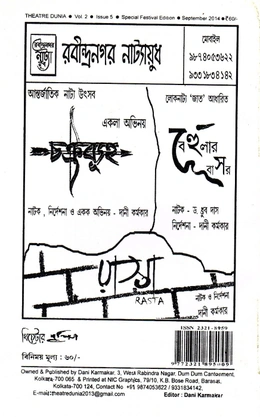 THEATRE DUNIA ● Vol 2 ● Issue 5 ● Special Festival Edition ● September 2014 ● ₹60/-
রবীন্দ্রনগর
নাট্য
রবীন্দ্রনগর নাট্যায়ুধ
মোবাইল
৯৮৭৪০৫৩৬২২
৯৩৩১৮৩৪১৪২
আন্তর্জাতিক নাট্য উৎসব
একলা অভিনয়
চক্রব্যূহ
নাটক, নির্দেশনা ও একক অভিনয় - দানী কর্মকার
লোকনাট্য 'জাত' আধারিত
বেহুলার
বাসর
নাটক - ড. ধ্রুব দাস
নির্দেশনা - দানী কর্মকার
রাস্তা
RASTA
নাটক ও নির্দেশনা
দানী কর্মকার
বিনিময় মূল্য : ৬০/-
ISSN 2321-8959
9 772321 895106
Owned & Published by Dani Karmakar, 3, West Rabindra Nagar, Dum Dum Cantonment,
Kolkata-700 065 & Printed at NIC Graphics, 79/10, K.B. Bose Road, Barasat,
Kolkata-700 124, Contact No +91 9874053622 / 9331834142,
E-mail:theatredunia2013@gmail.com Editor : Dani Karmakar